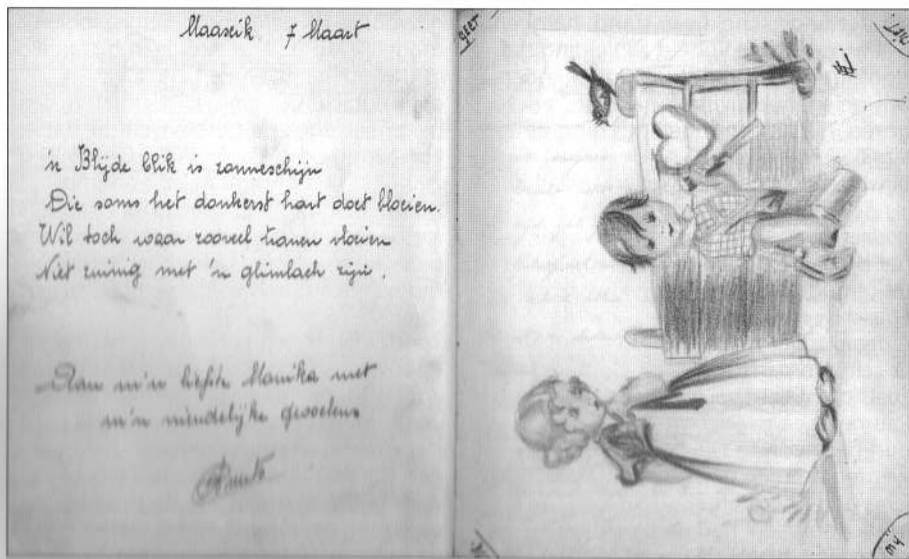 Maaseik 7 Maart
'n Blijde blik is zonneschijn
Die soms het donkerst hart doet bloeien.
Wil toch waar zooveel tranen vloeien
Niet zuinig met 'n glimlach zijn.
Aan m'n liefste Monika met
m'n vriendelijke gevoelens